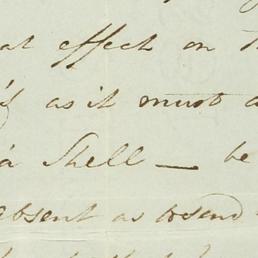 at effect on
as it must
a Shell — be
absent as to send